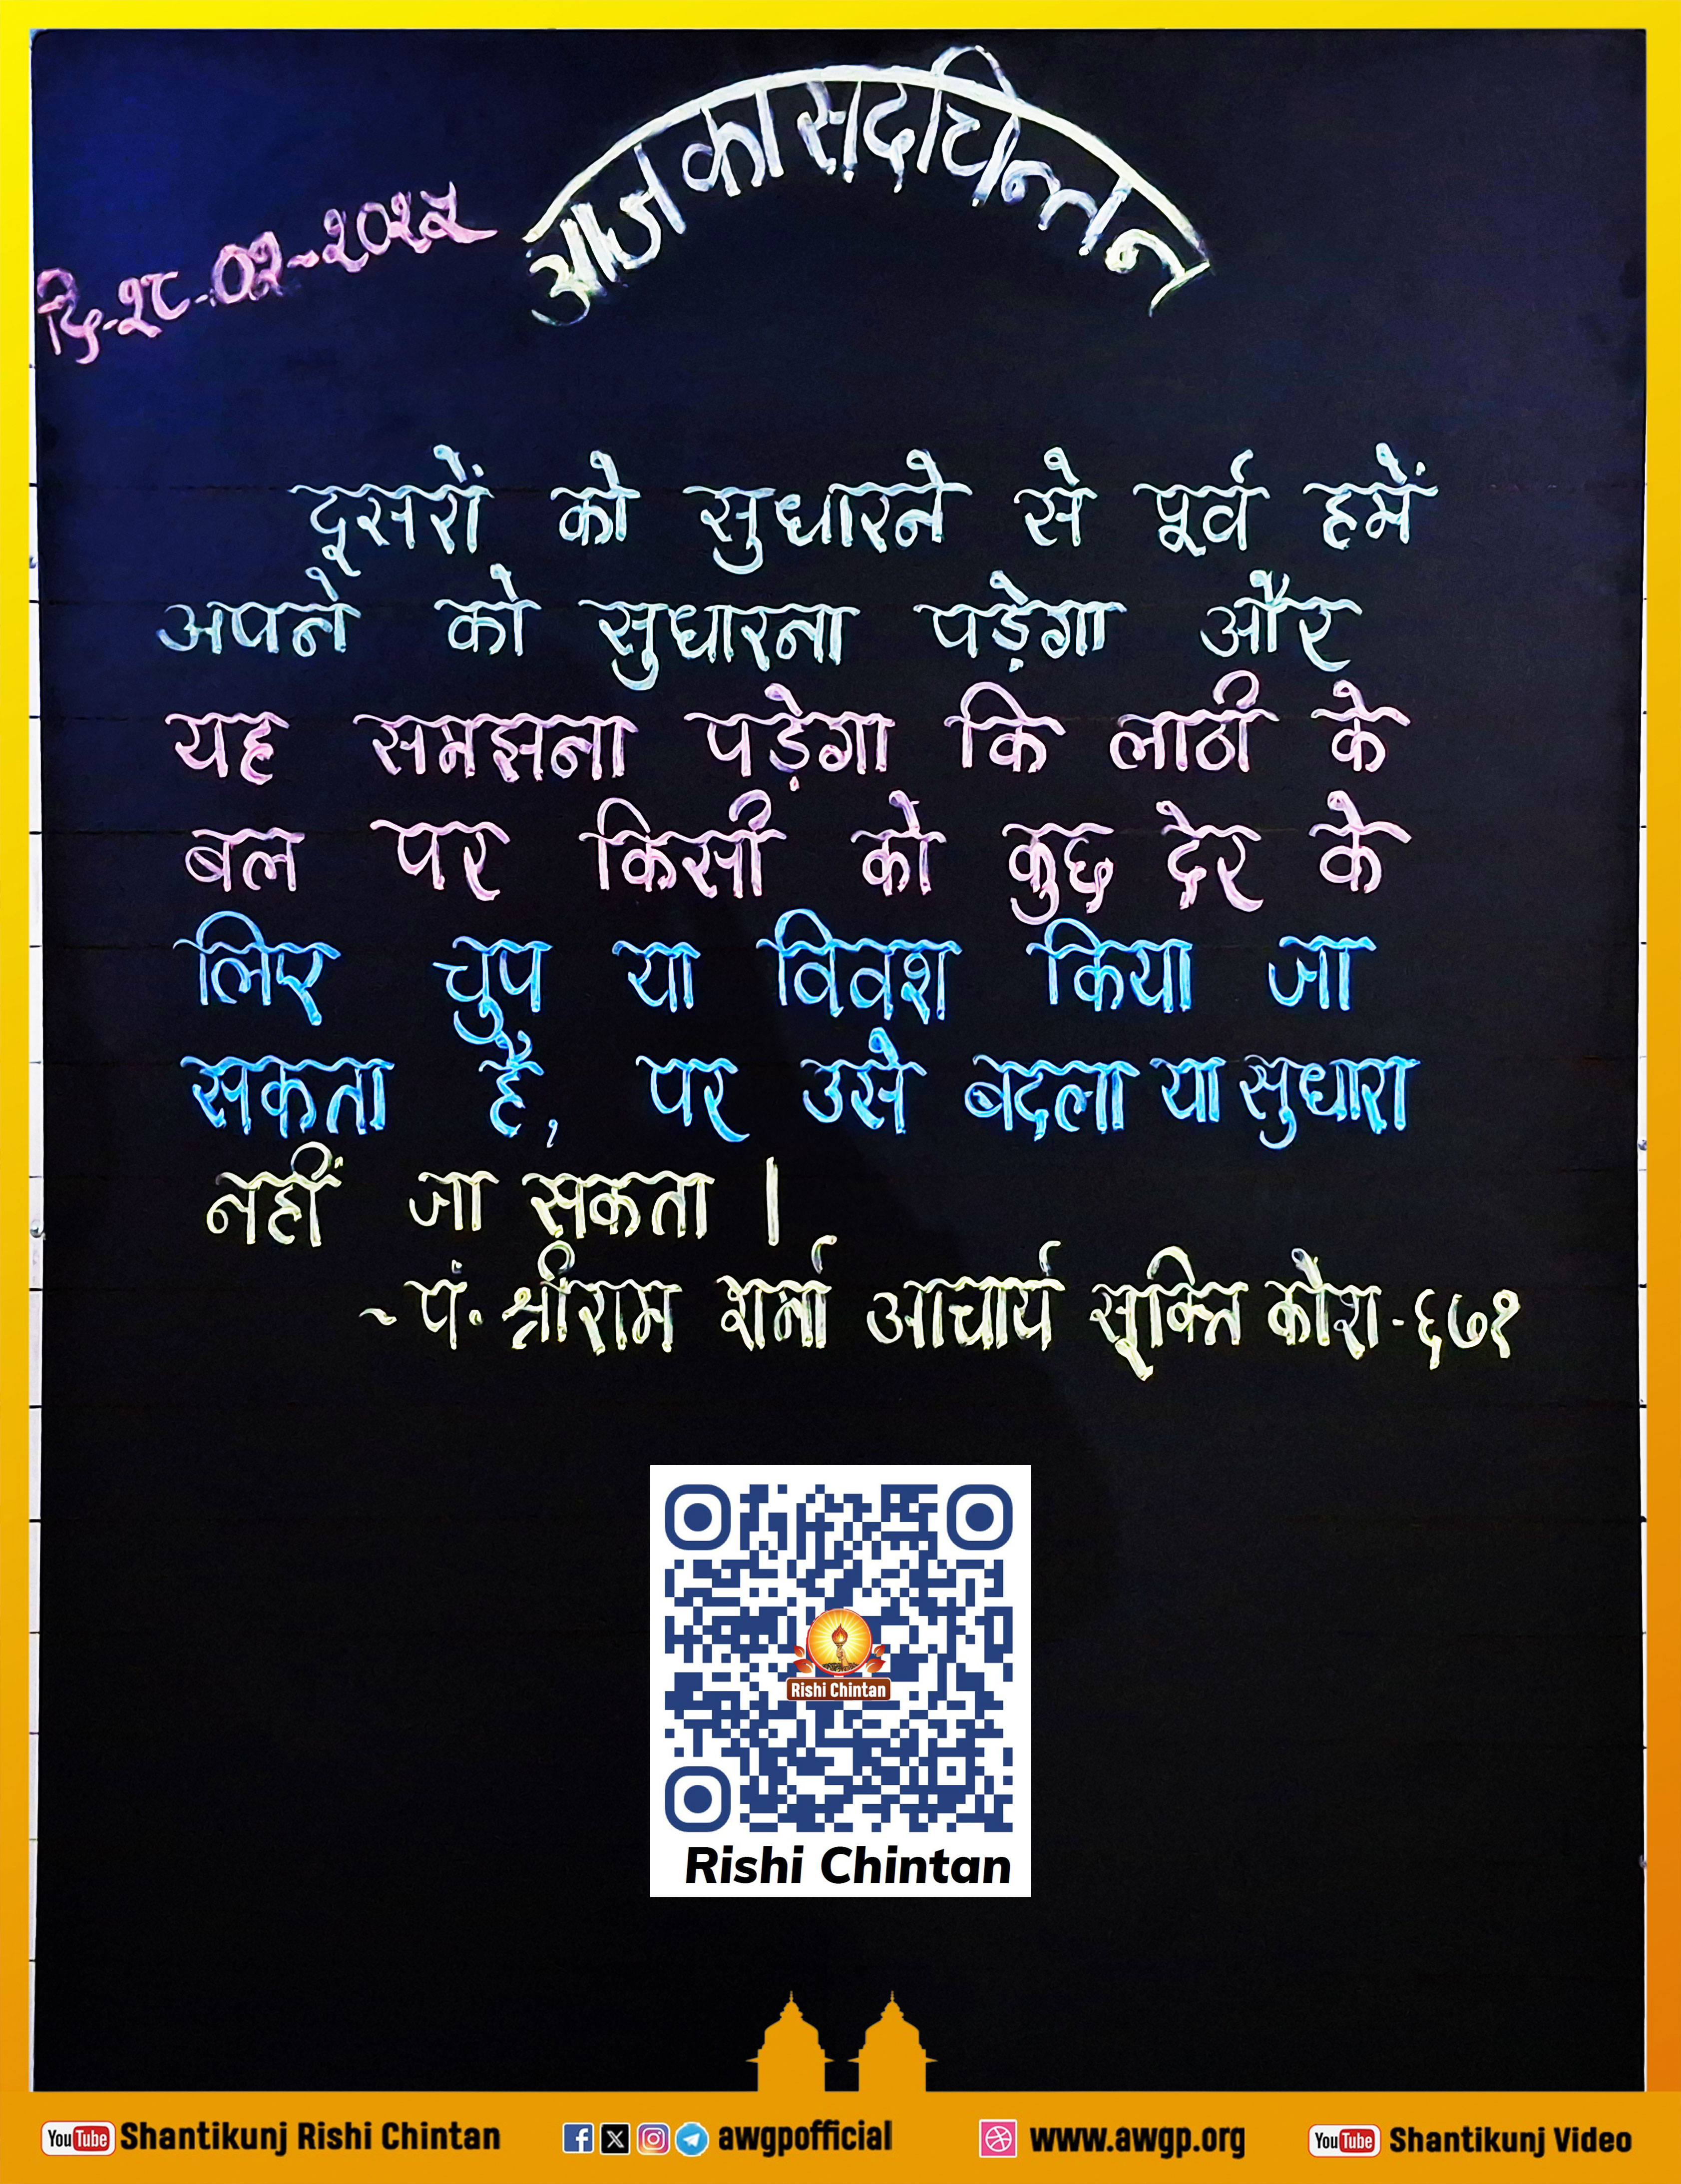 आज का सदचिन्तन
दि-२८-०२-२०२५
दूसरों को सुधारने से पूर्व हमें
अपने को सुधारना पड़ेगा और
यह समझना पड़ेगा कि लाठी के
बल पर किसी को कुछ देर के
लिए चुप या विवश किया जा
सकता है, पर उसे बदला या सुधारा
नहीं जा सकता ।
~ पं. श्रीराम शर्मा आचार्य सूक्ति कोश - ६७१
Rishi Chintan
Rishi Chintan
YouTube Shantikunj Rishi Chintan awgpofficial www.awgp.org YouTube Shantikunj Video